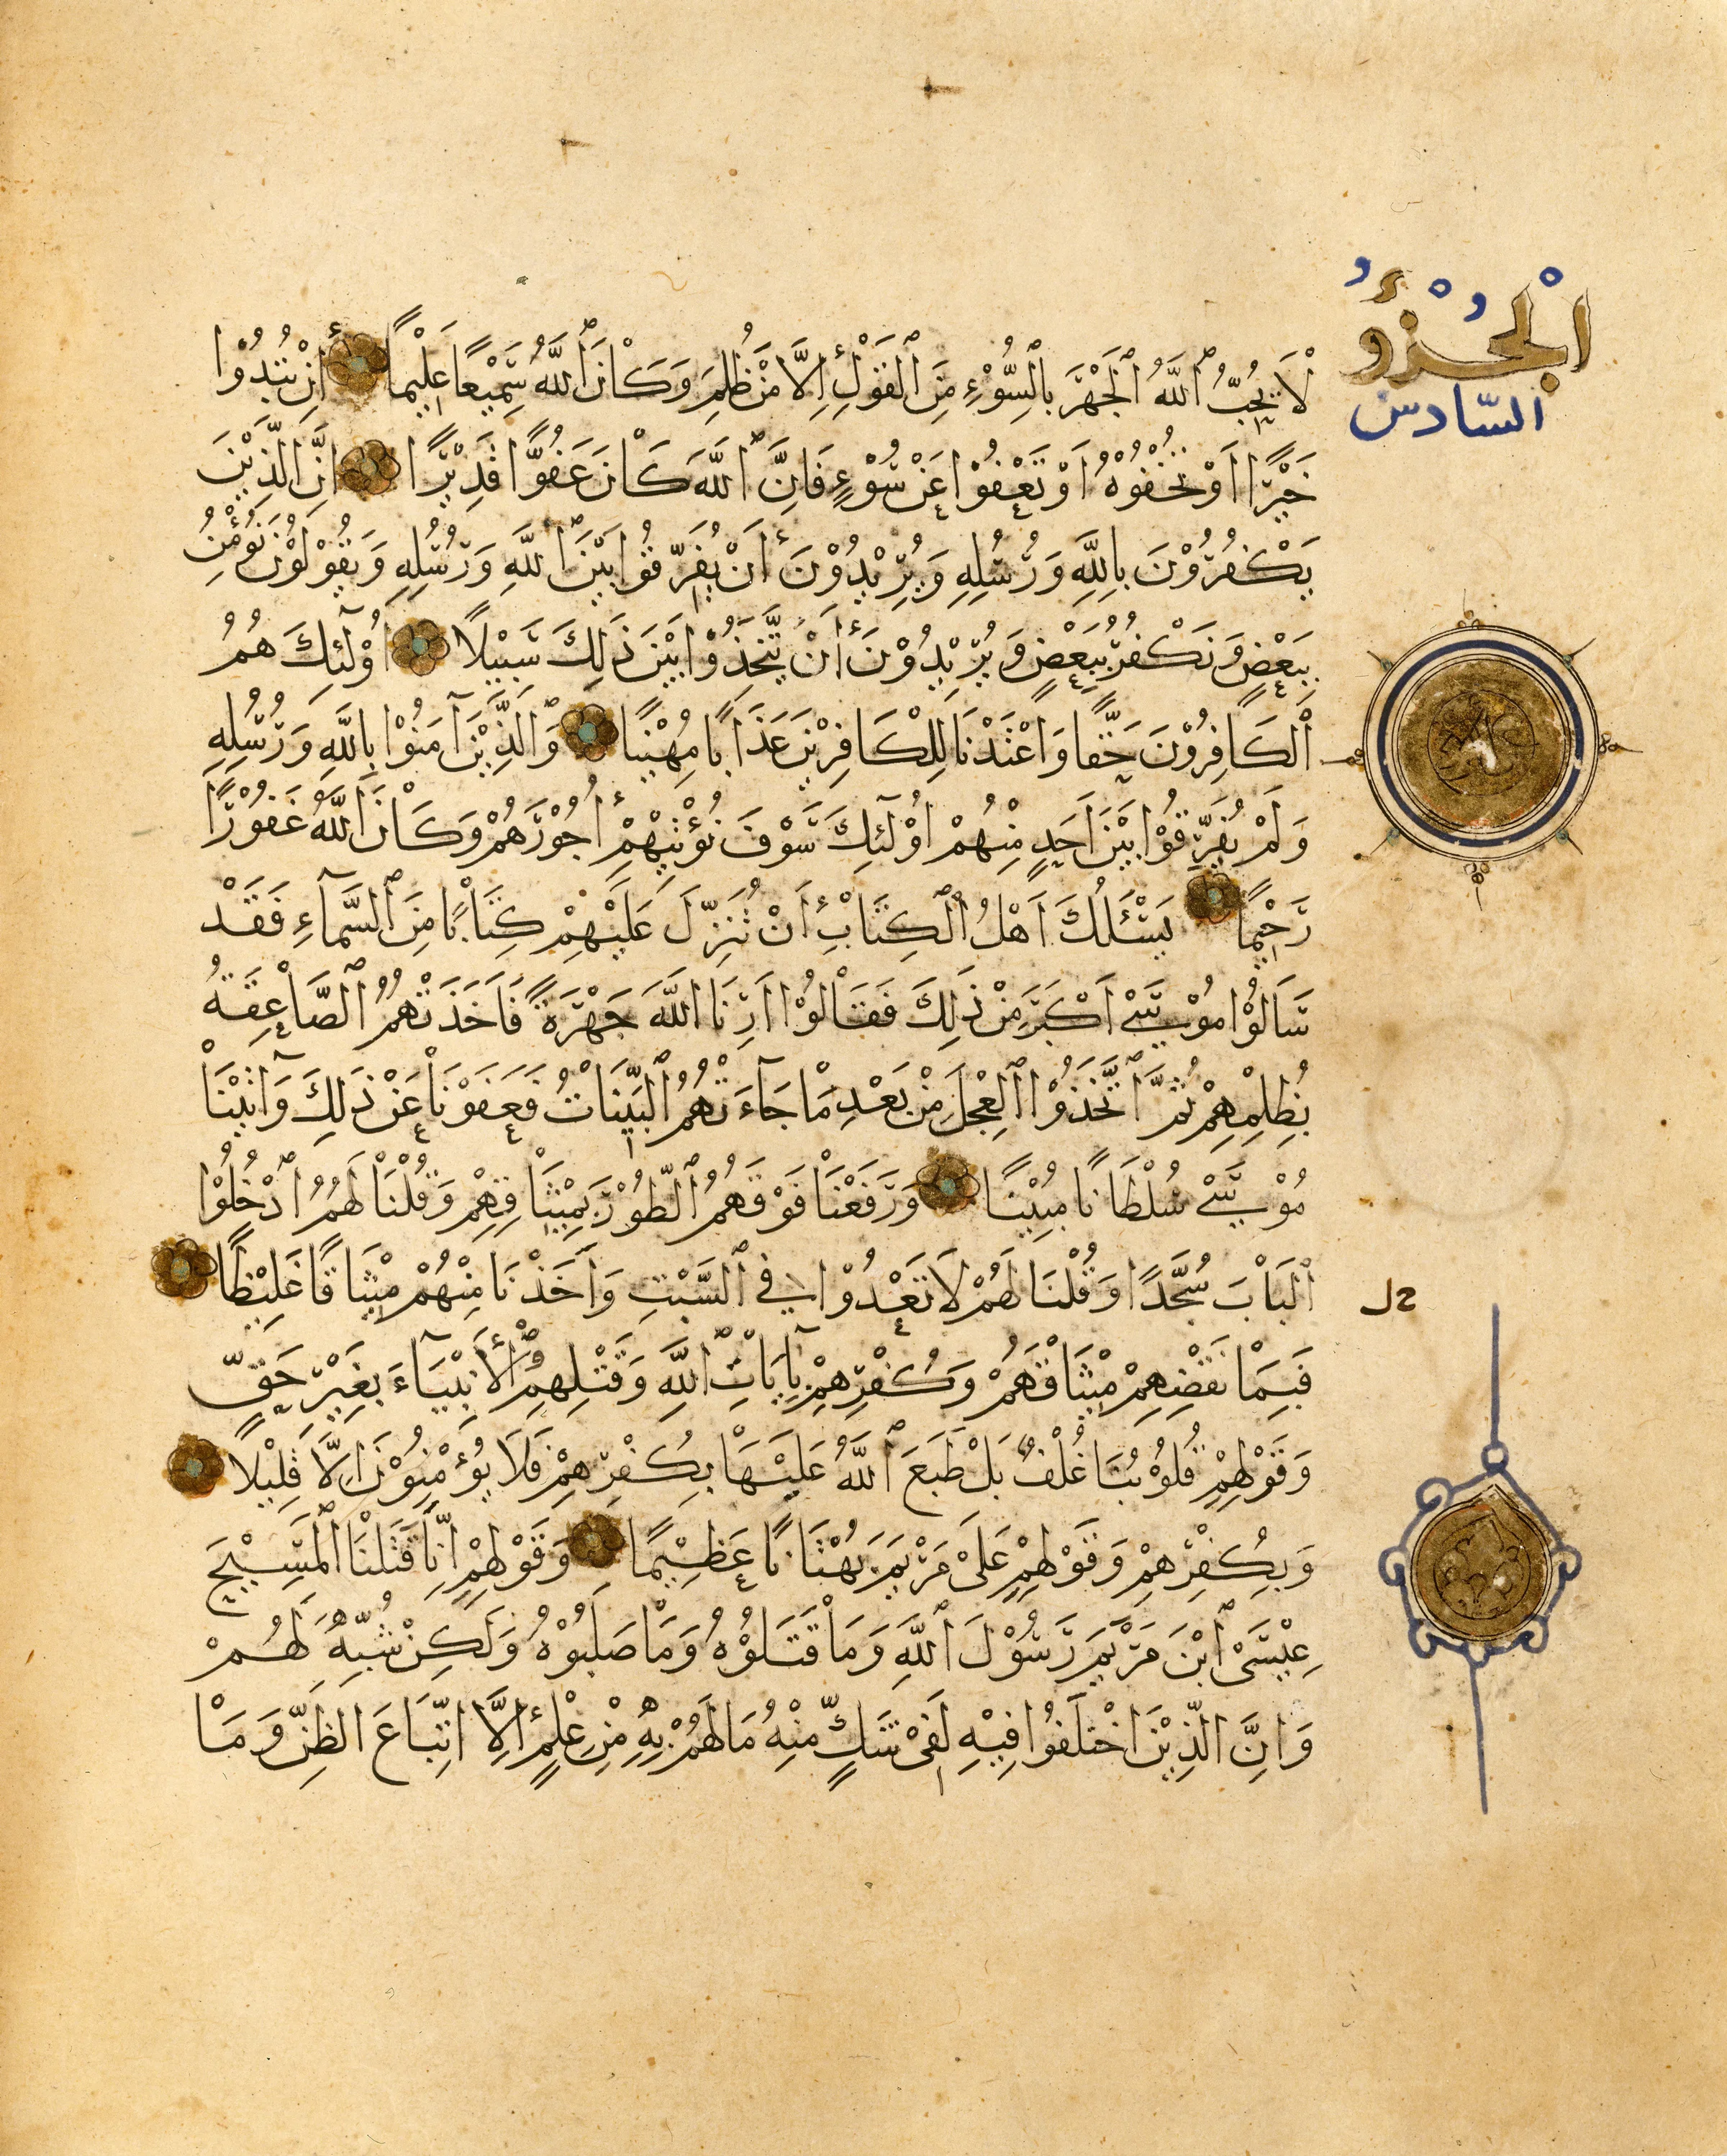 الْجُزْؤُ
السّادس
لَا يُحِبُّ ٱللَّهُ ٱلْجَهْرَ بِالسُّوْءِ مِنَ ٱلْقَوْلِ اِلَّا مَنْ ظُلِمَ وَكَانَ ٱللَّهُ سَمِيْعًا عَلِيْمًا أِنْ تُبْدُوْا
خَيْرًا اَوْ تُخْفُوْهُ اَوْ تَعْفُوْا عَنْ سُوْءٍ فَاِنَّ ٱللَّهَ كَانَ عَفُوًّا قَدِيْرًا اِنَّ الَّذِيْنَ
يَكْفُرُوْنَ بِاللَّهِ وَرُسُلِهِ وَيُرِيْدُوْنَ أَنْ يُفَرِّقُوا بَيْنَ ٱللَّهِ وَرُسُلِهِ وَيَقُوْلُوْنَ نُؤْمِنُ
بِبَعْضٍ وَنَكْفُرُ بِبَعْضٍ وَيُرِيْدُوْنَ أَنْ يَتَّخِذُوْا بَيْنَ ذَلِكَ سَبِيْلًا اُوْلَٓئِكَ هُمُ
ٱلْكَافِرُوْنَ حَقًّا وَاَعْتَدْنَا لِلْكَافِرِيْنَ عَذَابًا مُهِيْنًا وَٱلَّذِيْنَ آمَنُوْا بِاللَّهِ وَرُسُلِهِ
وَلَمْ يُفَرِّقُوْا بَيْنَ اَحَدٍ مِنْهُمْ اُوْلَٓئِكَ سَوْفَ نُؤْتِيْهِمْ أُجُوْرَهُمْ وَكَانَ ٱللَّهُ غَفُوْرًا
رَحِيْمًا يَسْـَٔلُكَ اَهْلُ ٱلْكِتَابِ اَنْ تُنَزِّلَ عَلَيْهِمْ كِتَابًا مِنَ ٱلسَّمَآءِ فَقَدْ
سَاَلُوْا مُوْسَىْ اَكْبَرَ مِنْ ذَلِكَ فَقَالُوْا اَرِنَا اللَّهَ جَهْرَةً فَاَخَذَتْهُمُ ٱلصَّاعِقَةُ
بِظُلْمِهِمْ ثُمَّ ٱتَّخَذُوْا ٱلْعِجْلَ مِنْ بَعْدِ مَا جَآءَتْهُمُ ٱلْبَيِّنَاتُ فَعَفَوْنَا عَنْ ذَلِكَ وَآتَيْنَا
مُوْسَىْ سُلْطَانًا مُبِيْنًا وَرَفَعْنَا فَوْقَهُمُ ٱلطُّوْرَ بِمِيْثَاقِهِمْ وَقُلْنَا لَهُمُ ٱدْخُلُوْا
ٱلْبَابَ سُجَّدًا وَقُلْنَا لَهُمْ لَا تَعْدُوْا فِي ٱلسَّبْتِ وَاَخَذْنَا مِنْهُمْ مِيْثَاقًا غَلِيْظًا
فَبِمَا نَقْضِهِمْ مِيْثَاقَهُمْ وَكُفْرِهِمْ بِآيَاتِ ٱللَّهِ وَقَتْلِهِمُ ٱلْأَنْبِيَآءَ بِغَيْرِ حَقٍّ
وَقَوْلِهِمْ قُلُوْبُنَا غُلْفٌ بَلْ طَبَعَ ٱللَّهُ عَلَيْهَا بِكُفْرِهِمْ فَلَا يُؤْمِنُوْنَ اِلَّا قَلِيْلًا
وَبِكُفْرِهِمْ وَقَوْلِهِمْ عَلَىْ مَرْيَمَ بُهْتَانًا عَظِيْمًا وَقَوْلِهِمْ اِنَّا قَتَلْنَا ٱلْمَسِيْحَ
عِيْسَىْ ٱبْنَ مَرْيَمَ رَسُوْلَ ٱللَّهِ وَمَا قَتَلُوْهُ وَمَا صَلَبُوْهُ وَلَكِنْ شُبِّهَ لَهُمْ
وَاِنَّ الَّذِيْنَ اخْتَلَفُوْا فِيْهِ لَفِىْ شَكٍّ مِنْهُ مَا لَهُمْ بِهِ مِنْ عِلْمٍ اِلَّا اتِّبَاعَ الظَّنِّ وَمَا